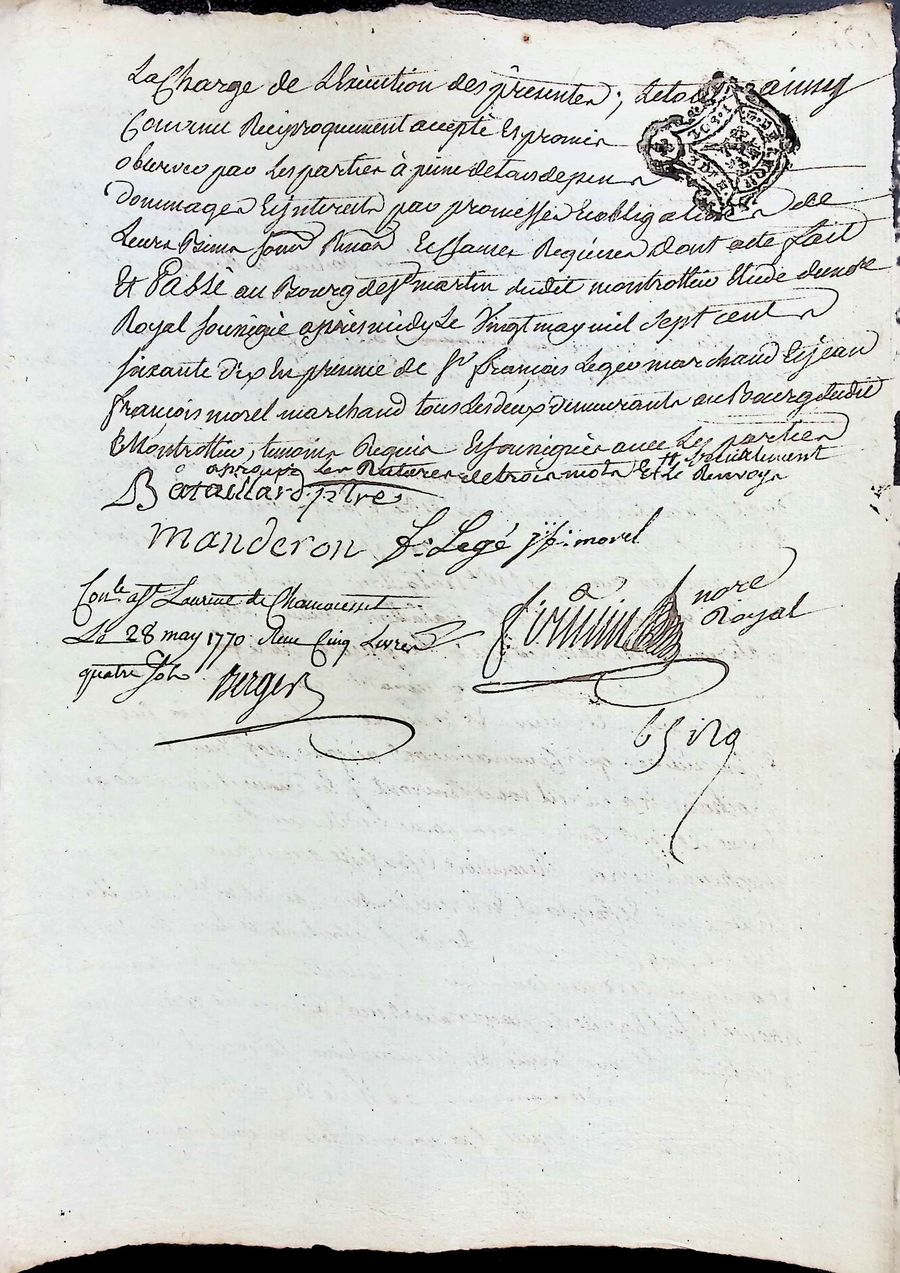 La Charge de L'Exécution des présentes; Le tout ainsy
Convenu Réciproquement accepté Et promis
observer par Les parties à peine de tous depens
dommages Et interets par promesses Et obligations de
Leurs Biens soum Renon Et Clauses Requises dont acte fait
Et Passé au Bourg de St martin dudit montrottier Etude dunore
Royal soussigné après midy Le Vingt may mil sept cents
soixante dix En presence de Sr françois Leger marchand Et jean
françois morel marchand tous Les deux demeurants au Bourg dudit
Montrottier, temoins Requis Et soussignés avec Les parties
approuvé Les Ratures de trois mots Et Le Renvoy
Bataillard ptre
Manderon f. Legé j f. morel
Conle a St Laurent de Chamousset
Le 28 may 1770 Reçu Cinq Livres
quatre sols Berger
nore
Royal